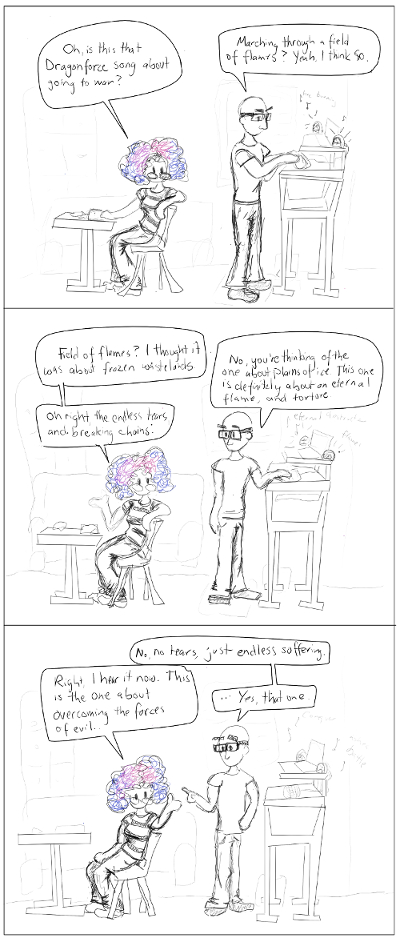 Oh, is this that
Dragonforce song about
going to war?
Marching through a field
of flames? Yeah, I think so.
Field of flames? I thought it
was about frozen wastelands
No, you're thinking of the
one about plains of ice. This one
is definitely about an eternal
flame, and torture
Oh right the endless tears
and breaking chains.
No, no tears, just endless suffering.
Right I hear it now. This
is the one about
overcoming the forces
of evil...
... Yes, that one.